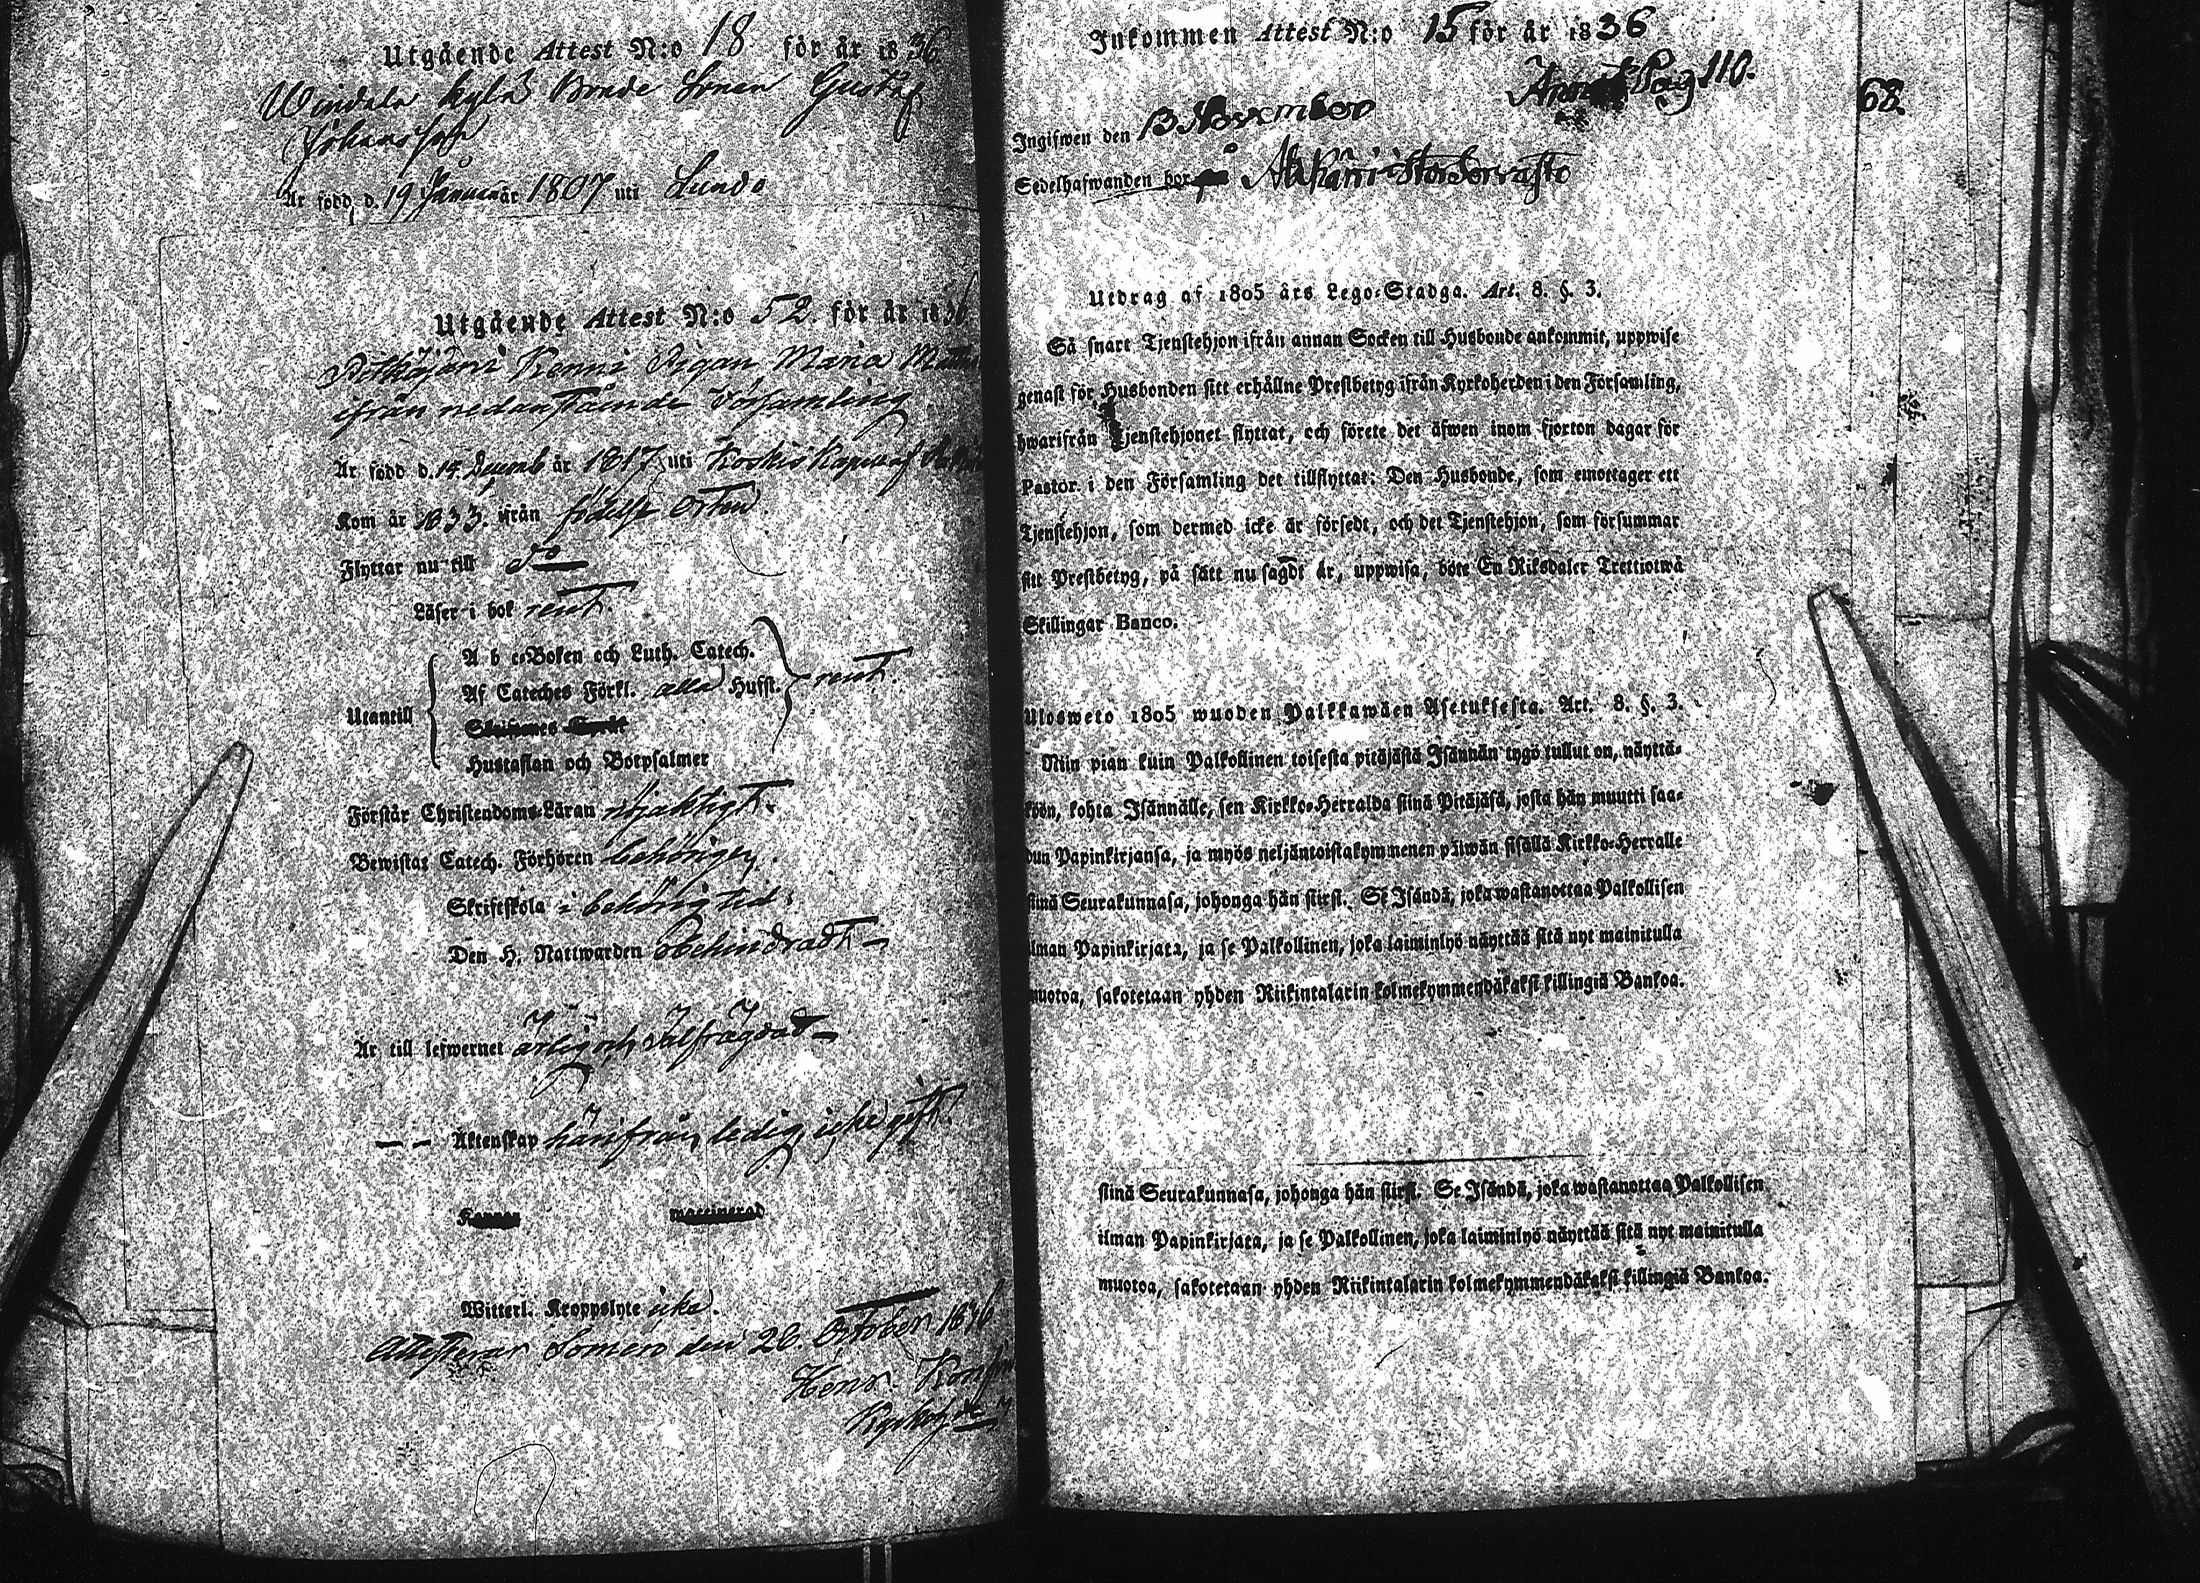 Utgående Attest N:o 18 för år 1836
Windala bylä Bonde Sonen Gustaf
Johansson
Är född d. 19 Januari år 1807 uti Lundo
Utgående Attest N:o 52. för år 1836
Pitkäjärvi Pigan Maria
ifrån nedanstående Församling
Är född d. 14 Decemb år 1817 uti Koskis Kapell af
Kom år 1833. ifrån födelse Orten.
Flyttar nu till
Läser i bok rent.
A b c-Boken och Luth. Catech.
Af Cateches Förkl. alla Hufst. rent.
Utantill
Hustaflan och Botpsalmer
Förstår Christendoms-Läran nöjaktigt.
Bewistat Catech. Förhören behörigen.
Skriftskola i behörig tid.
Den H. Nattwarden obehindradt
Är till lefwernet ärlig och välfrägdad
Äktenskap härifrån ledig, icke gift.
Witterl. Kroppslyte icke.
Attesterar Somero den 26. October 1836
Henr.
Inkommen Attest N:o 15 för år 1836
Pag 110.
68.
Ingifwen den 13 November
Sedelhafwanden bor på
Utdrag af 1805 års Lego-Stadga. Art. 8. §. 3.
Så snart Tjenstehjon ifrån annan Socken till Husbonde ankommit, uppwise
genast för Husbonden sitt erhållne Prestbetyg ifrån Kyrkoherden i den Församling,
hwarifrån Tjenstehjonet flyttat, och förete det äfwen inom fjorton dagar för
Pastor i den Församling det tillflyttat: Den Husbonde, som emottager ett
Tjenstehjon, som dermed icke är försedt, och det Tjenstehjon, som försummar
sitt Prestbetyg, på sätt nu sagdt är, uppwisa, böte En Riksdaler Trettiotwå
Skillingar Banco.
Ulosweto 1805 wuoden Palkkawäen Asetuksesta. Art. 8. §. 3.
Niin pian kuin Palkollinen toisesta pitäjästä Isännän tygö tullut on, näyttä-
köön, kohta Isännälle, sen Kirkko-Herralda siinä Pitäjäsä, josta hän muutti saa-
dun Papinkirjansa, ja myös neljäntoistakymmenen päiwän sisällä Kirkko-Herralle
siinä Seurakunnasa, johonga hän siirsi. Se Isändä, joka wastanottaa Palkollisen
ilman Papinkirjata, ja se Palkollinen, joka laiminlyö näyttää sitä nyt mainitulla
muotoa, sakotetaan yhden Riikintalarin kolmekymmendäkaksi killingiä Bankoa.
siinä Seurakunnasa, johonga hän siirsi. Se Isändä, joka wastanottaa Palkollisen
ilman Papinkirjata, ja se Palkollinen, joka laiminlyö näyttää sitä nyt mainitulla
muotoa, sakotetaan yhden Riikintalarin kolmekymmendäkaksi killingiä Bankoa.